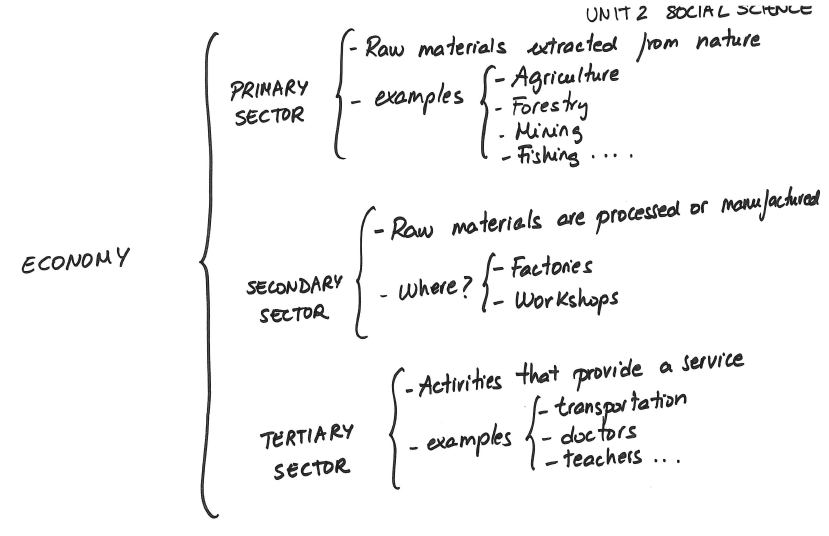 UNIT 2 SOCIAL SCIENCE
ECONOMY
PRIMARY
SECTOR
- Raw materials extracted from nature
- examples
- Agriculture
- Forestry
- Mining
- Fishing ....
SECONDARY
SECTOR
- Raw materials are processed or manufactured
- Where?
- Factories
- Workshops
TERTIARY
SECTOR
- Activities that provide a service
- examples
- transportation
- doctors
- teachers ...